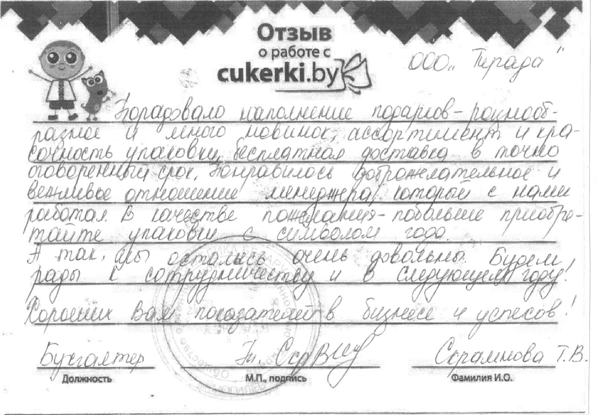 Отзыв
о работе с
cukerki.by
ООО „Тирада"
Порадовало наполнение подарков – разнооб-
разное и много новинок, ассортимент и кра-
сочность упаковки, бесплатная доставка в точно
оговоренный срок. Понравилось доброжелательное и
вежливое отношение менеджера, который с нами
работал. В качестве пожелания – побольше приобре-
тайте упаковки с символом года.
А так, мы остались очень довольны. Будем
рады к сотрудничеству и в следующем году!
Хороших Вам показателей в бизнесе и успехов!
Бухгалтер Т.В.
Должность М.П., подпись Фамилия И.О.